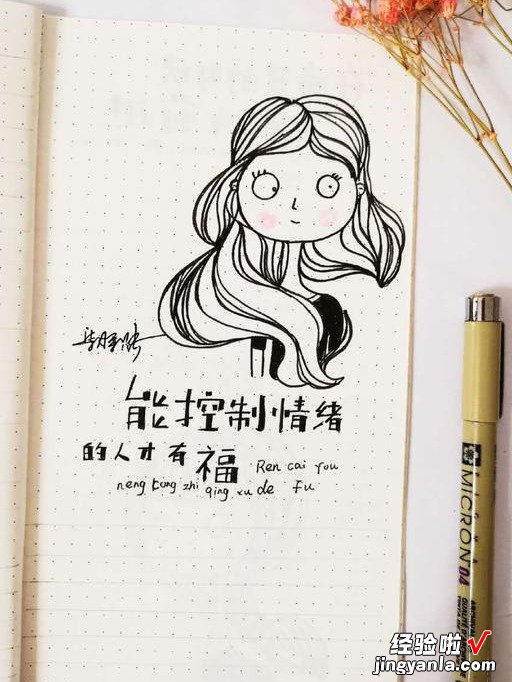 能控制情绪
的人才有福 Ren cai You
neng kong zhi qing xu de Fu
MICRON 04
经验啦√
jingyanla.com